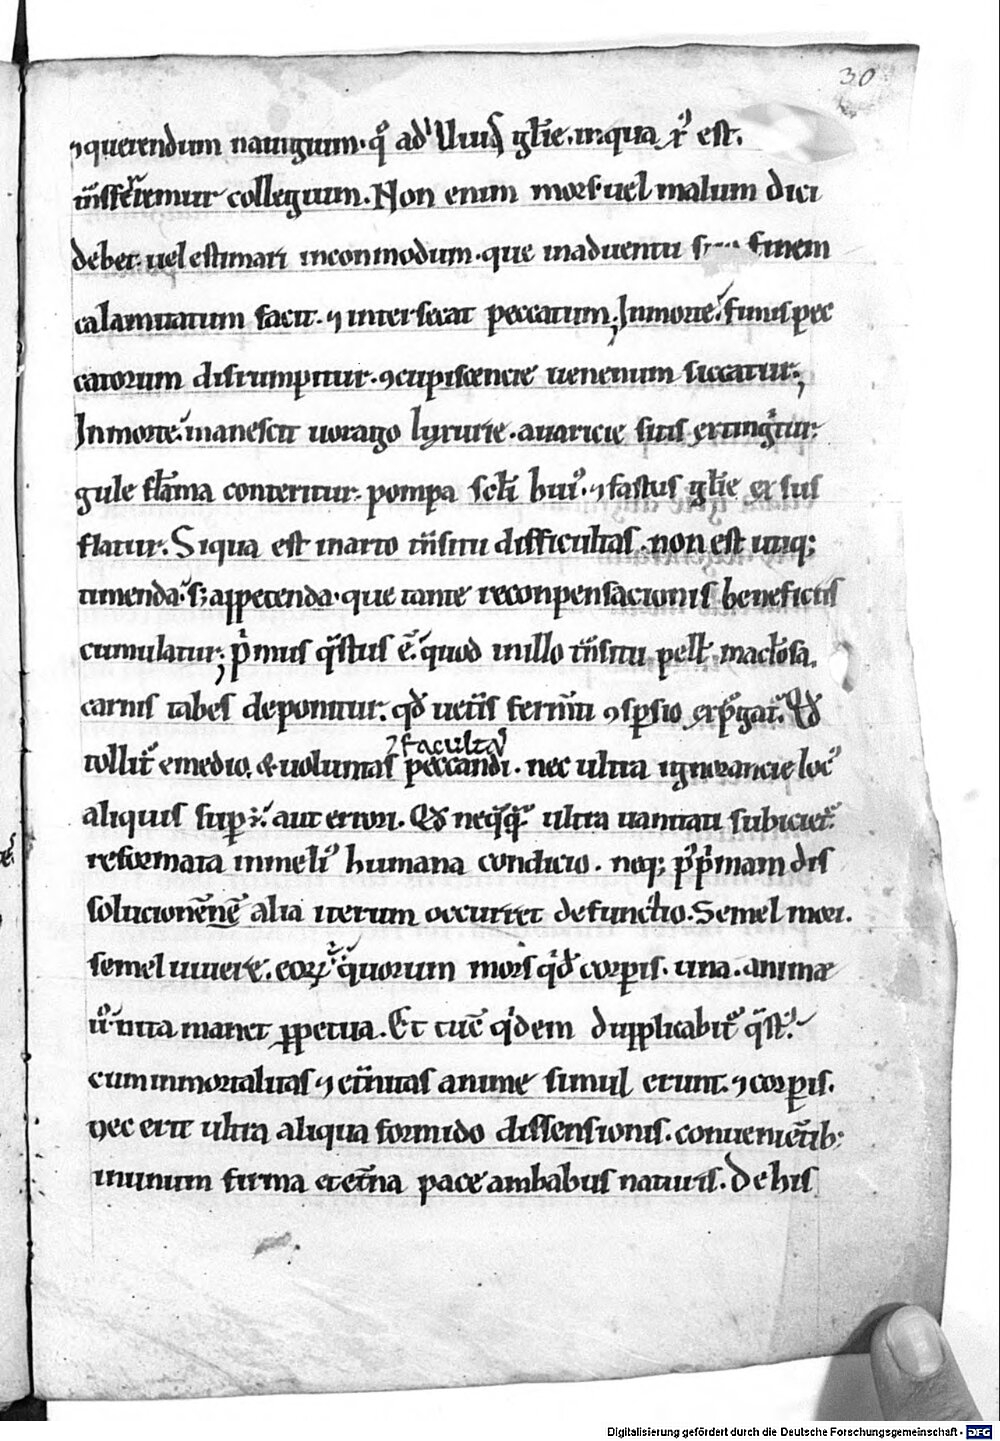 30
⁊querendum nauigium. qͦ ad illiuſ gl̄ie. in qua xp̄c eſt.
t͞nſferemur collegium. Non enim morſ uel malum dici
debet. uel eſtimari inconmodum. que in aduentu ſ finem
calamitatum facit. ⁊ interſecat peccatum; In morte funiſ pec
catorum diſrumpitur. ꝯcupiſcencie uenenum ſiccatur;
In morte inaneſcit uorago lyxurie. auaricie ſitiſ extingͥtur.
gule fla͞ma conteritur. pompa ſcl̄i hui᷒. ⁊ faſtuſ gl̄ie exſuf
flatur. Siqua eſt in arto t͞nſitu difficultaſ. non eſt utiq;
timenda. ſ; appetenda. que tante reconpenſacioniſ beneficiiſ
cumulatur; pͥmuſ q̄ſtuſ ē. quod in illo t͞nſitu pell
carniſ tabeſ deponitur. qđ ueti͞ſ ferm͞ti ꝯſꝑſio expͥgat. Qđ
facultaſ
tollit᷑ e medio. & uoluntaſ peccandi. nec ultra ignorancie loc᷒
aliquiſ ſuꝑ᷑. aut errori. Qđ neq̄q̄ ultra uanitati ſubiciet᷑
reformata in meli᷒ humana condicio. neq; p᷒ pͥmam diſ
ſolucione͞ alia iterum occurret defunctio. Semel mori.
ſemel uiuere. eoꝝ quorum morſ qͥdē corꝑiſ. una. animæ
uͦ uita manet ꝑpetua. Et tūc qͥdem dupplicabit᷑ q̄ſt᷒
cum inmortalitaſ ⁊ et͞nitaſ anime ſimul erunt. ⁊ corꝑiſ.
nec erit ultra aliqua formido diſſenſioniſ. conueniēti͞b;
in unum firma et et͞na pace ambabuſ naturiſ. De hiſ
Digitalisierung gefördert durch die Deutsche Forschungsgemeinschaft - DFG